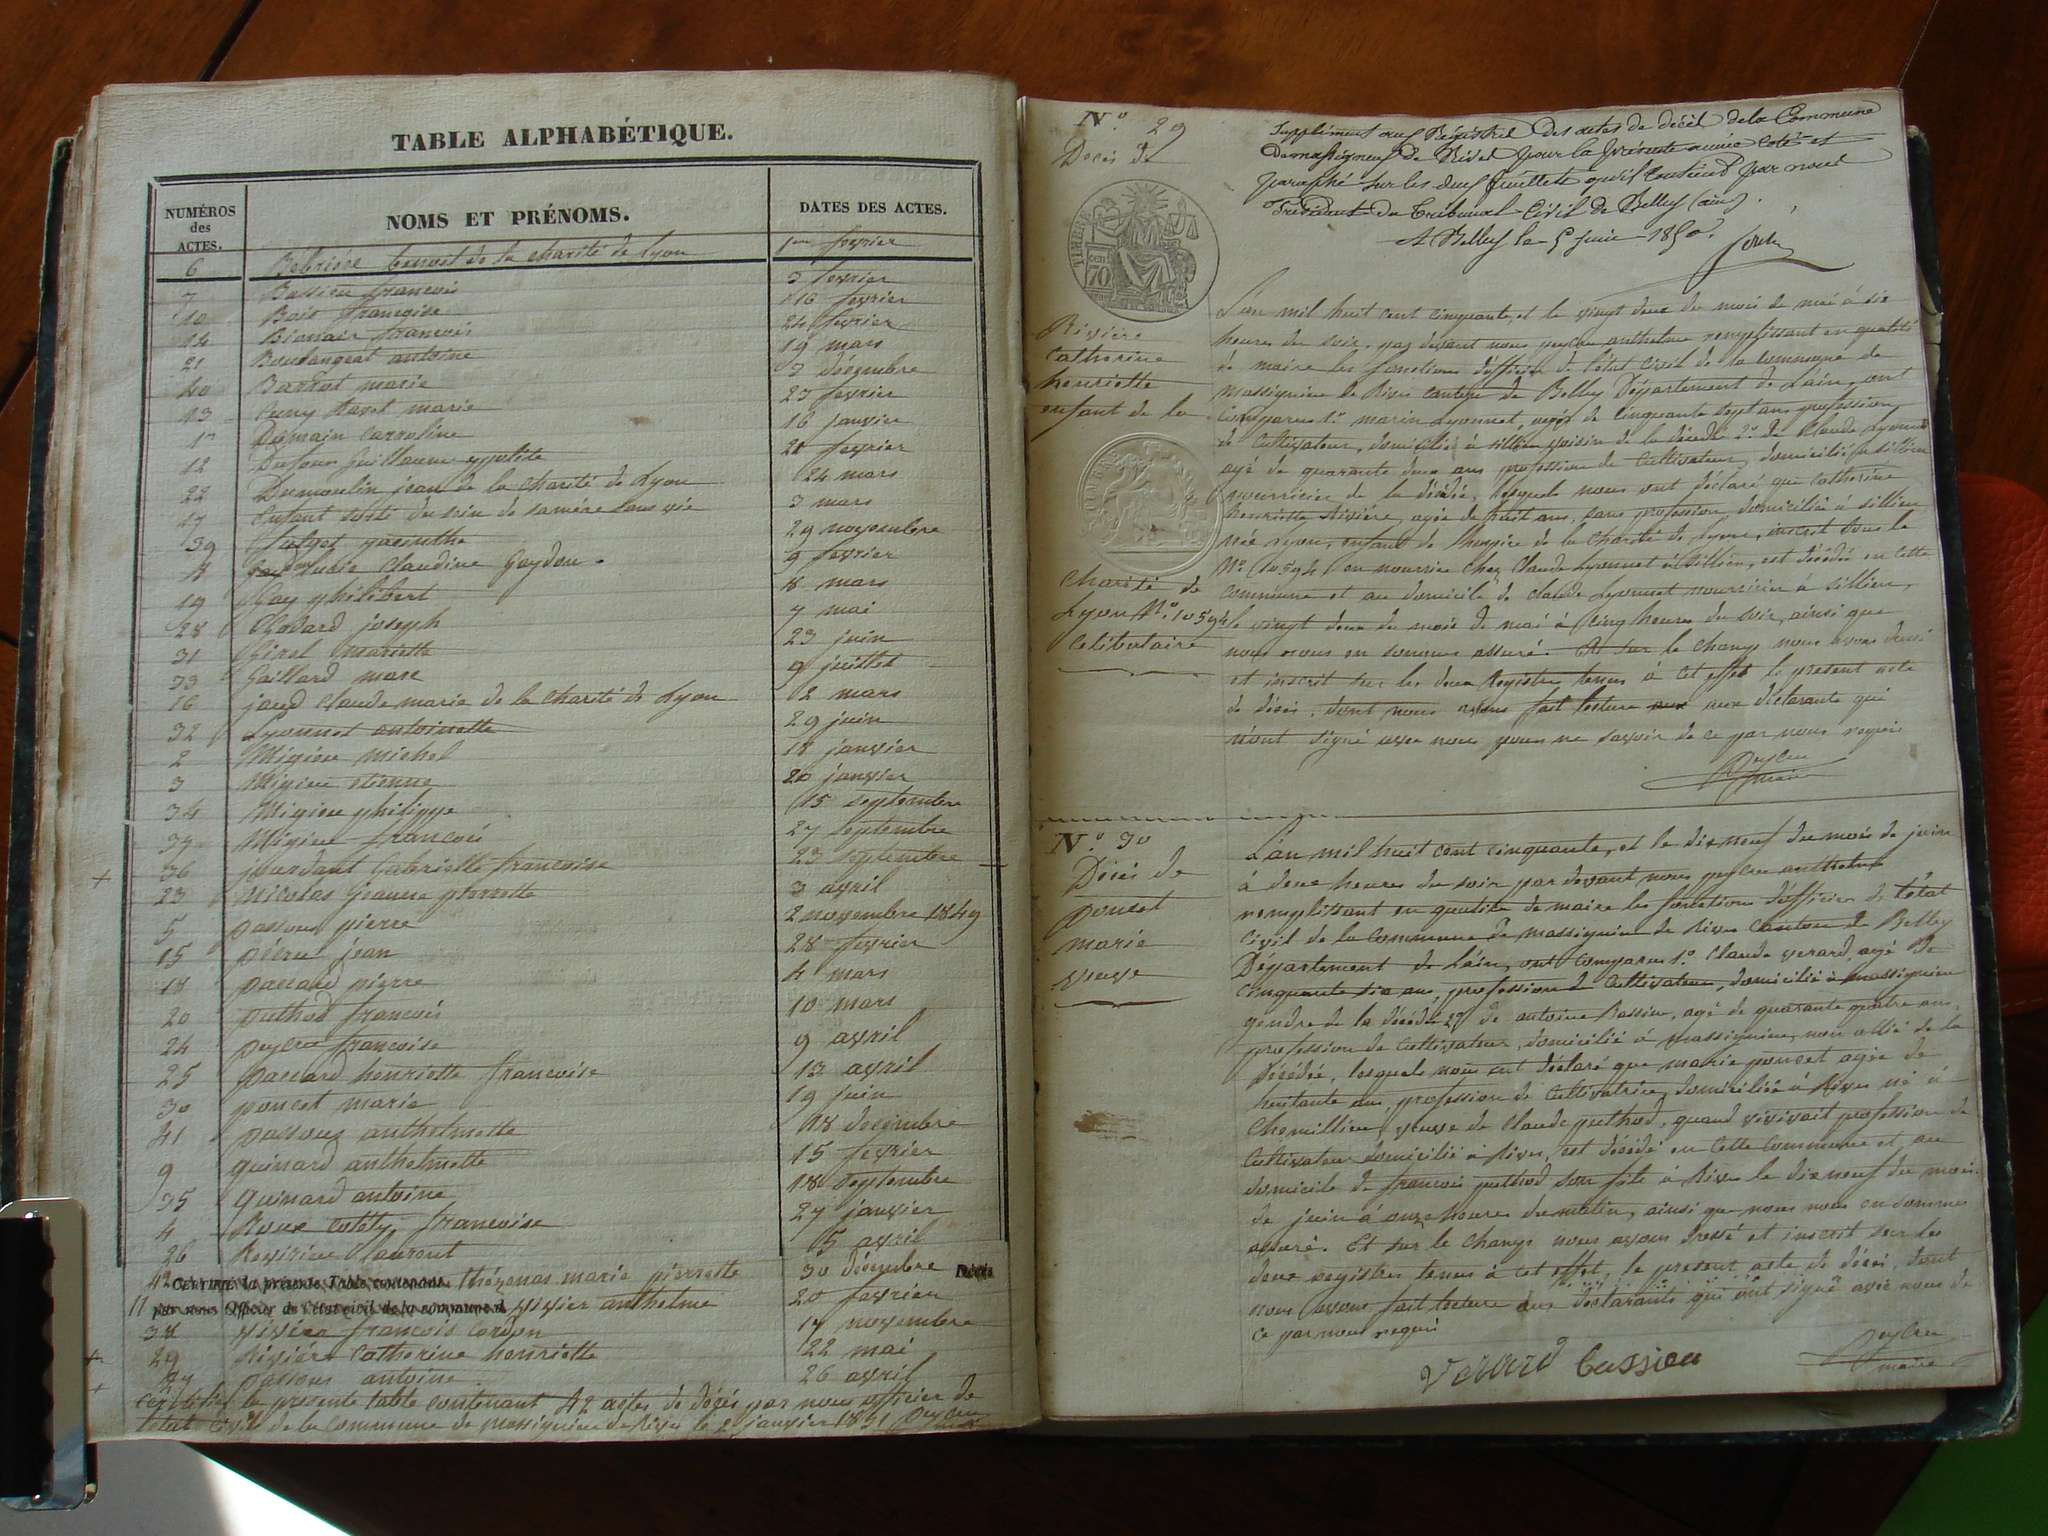 TABLE ALPHABÉTIQUE.
NUMÉROS des ACTES.
NOMS ET PRÉNOMS.
DATES DES ACTES.
6 benoit de la charité de Lyon 1er fevrier
7 Bassieu francois 3 fevrier
10 Bait francoise 16 fevrier
14 francois 24 fevrier
21 antoine 19 mars
40 marie 7 décembre
13 Cuny marie 23 fevrier
1er Domain Carroline 16 janvier
12 Dufour Guillaume 21 fevrier
22 Dumoulin jean de la charité de Lyon 24 mars
17 Enfant sorti du sein de sa mère sans vie 3 mars
39 29 novembre
8 marie Claudine Goydon 9 fevrier
19 Gay philibert 8 mars
28 Godard joseph 7 mai
31 Girel mariette 23 juin
33 Gaillard marc 9 juillet
16 claude marie de la charité de Lyon 2 mars
32 Lyonnet antoinette 29 juin
2 Migieu michel 18 janvier
3 Migieu etienne 20 janvier
34 Migieu philippe 15 septembre
37 Migieu francois 27 septembre
36 jourdant Gabrielle francoise 23 septembre
23 Nicolas jeanne pierrette 3 avril
5 passous pierre 2 novembre 1849
15 jean 28 fevrier
18 paccard pierre 4 mars
20 puthod francois 10 mars
24 peyleu francoise 9 avril
25 paccard henriette francoise 13 avril
30 poncet marie 19 juin
41 passous anthelmette 18 decembre
9 quinard anthelmette 15 fevrier
35 quinard antoine 18 septembre
4 Roux francoise 27 janvier
26 Revirieu laurent 5 avril
42 CERTIFIÉ la présente Table, contenant thézenas marie pierrette 30 décembre Décès
11 par nous Officier de l'état civil de la commune d vivier anthelme 20 fevrier
38 francois cordon 17 novembre
29 Rivière Catherine henriette 22 mai
27 passous antoine 26 avril
Certifié la presente table contenant 42 actes de décès par nous officier de
l'état civil de la commune de massignieu de Rives le 2 janvier 1851 peyleu
N.o 29
Décès de
Supplément aux Régistres des actes de décès de la Commune
de massigneux de Rives pour la présente année coté et
paraphé sur les deux feuillets qu'il contient par nous
Président du Tribunal Civil de Belley (ain).
A Belley le 5 juin 1850.
TIMBRE
70
Rivière
Catherine
henriette
enfant de la
charité de
Lyon N.o 10594
Celibataire
L'an mil huit cent cinquante, et le vingt deux du mois de mai à six
heures du soir, par devant nous peyleu anthelme remplissant en qualité
de maire les fonctions d'officier de l'état civil de la commune de
massignieu de Rives canton de Belley Département de l'ain, ont
comparus 1.o marin Lyonnet, agé de cinquante sept ans profession
de cultivateur, domicilié à sillieu voisin de la décédée 2.o de Claude Lyonnet
agé de quarante deux ans profession de cultivateur, domicilié à sillieu
nourricier de la décédée, lesquels nous ont déclaré que Catherine
henriette Rivière, agée de huit ans, sans profession domiciliée à sillieu
née Lyon, enfant de l'hospice de la charité de Lyon, inscrit sous le
N.o 10594 en nourrice chez Claude Lyonnet à sillieu, est décédée en cette
commune et au domicile de Claude Lyonnet nourricier à sillieu,
le vingt deux du mois de mai à cinq heures du soir, ainsi que
nous nous en sommes assuré. Et sur le champ nous avons dressé
et inscrit sur les deux Registres tenus à cet effet le présent acte
de décès, dont nous avons fait lecture aux déclarants qui
n'ont signé avec nous pour ne savoir de ce par nous requis
Peyleu
maire
N.o 30
Décès de
poncet
marie
veuve
L'an mil huit cent cinquante, et le dixneuf du mois de juin
à deux heures du soir par devant nous peyleu anthelme
remplissant en qualité de maire les fonctions d'officier de l'état
civil de la commune de massignieu de Rives canton de Belley
Département de l'ain, ont comparus 1.o Claude verard, agé de
cinquante six ans, profession de cultivateur, domicilié à massignieu
gendre de la décédée 2.o de antoine Bassieu, agé de quarante quatre ans,
profession de cultivateur, domicilié à massignieu, non allié de la
décédée, lesquels nous ont déclaré que marie poncet agée de
ans, profession de cultivatrice, domiciliée à Rives né à
Chemillieu, veuve de Claude puthod, quand vivivait profession de
cultivateur domicilié à Rives, est décédé en cette commune et au
domicile de francois puthod son fils à Rives le dixneuf du mois
de juin à onze heures du matin, ainsi que nous nous en sommes
assuré. Et sur le champ nous avons dressé et inscrit sur les
deux registres tenus à cet effet, le present acte de décès, dont
nous avons fait lecture aux déclarants qui ont signé avec nous de
ce par nous requis
Verard bassieu
Peyleu
maire